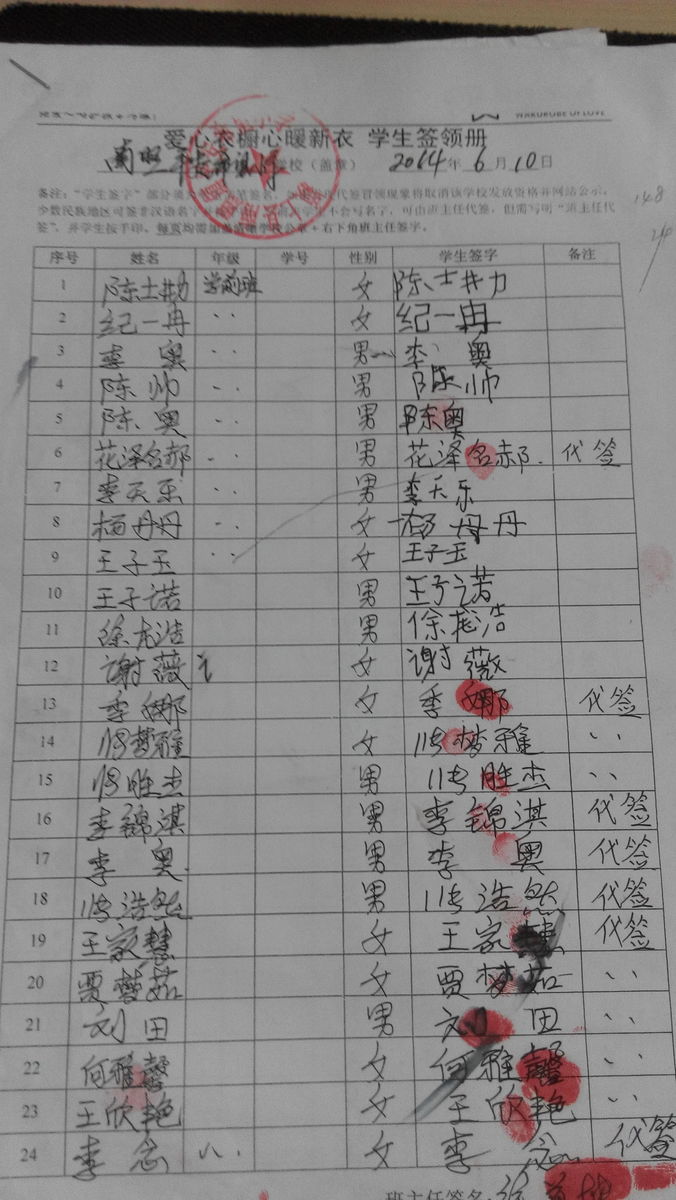 WARDROBE OF LOVE
爱心衣橱心暖新衣 学生签领册
学校（盖章） 2014年 6月10日
备注："学生签字"部分须
代签冒领现象将取消该学校发放资格并网站公示。
少数民族地区可签非汉语名字
学生不会写名字，可由班主任代签，但需写明"班主任代
签"，并学生按手印。每页均需加盖清晰学校公章+右下角班主任签字。
148
序号 姓名 年级 学号 性别 学生签字 备注
1 陈士勘 学前班 女 陈士勘
2 纪一冉 ·· 女 纪一冉
3 李奥 ·· 男 李奥
4 陈帅 ·· 男 陈帅
5 陈奥 ·· 男 陈奥
6 花泽名郝 ·· 男 花泽名郝 代签
7 李天乐 ·· 男 李天乐
8 丹丹 ·· 女 丹丹
9 王子玉 ·· 女 王子玉
10 王子诺 男 王子诺
11 徐龙浩 男 徐彪浩
12 谢薇 女 谢薇
13 李娜 女 李娜 代签
14 梦雅 女 梦雅 ··
15 胜杰 男 胜杰 ··
16 李锦淇 男 李锦淇 代签
17 李奥 男 李奥 代签
18 浩然 男 浩然 代签
19 王家慧 女 王家慧 代签
20 贾梦茹 女 贾梦茹 ··
21 刘田 男 刘田 ··
22 何雅馨 女 何雅馨 ··
23 王欣艳 女 王欣艳 ··
24 李念 ·· 女 李念 代签
班主任签名: